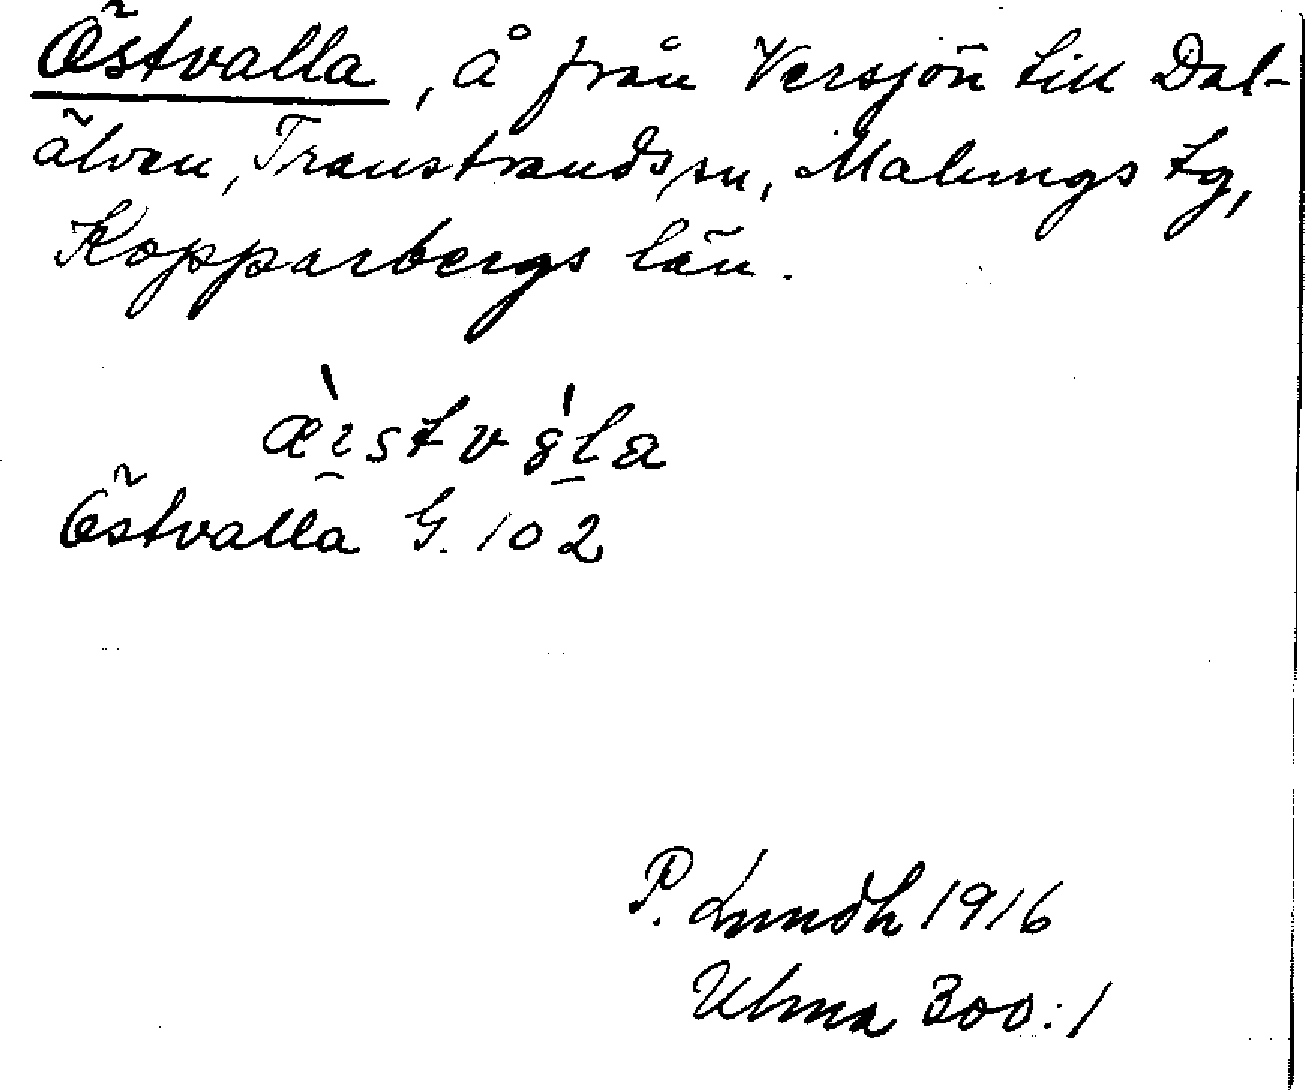 Östvalla, å från Versjön till Dal-
älven, Transtrands sn, Malungs tg,
Kopparbergs län.
Östvalla G. 102
P. Lundh 1916
Ulma 300:1